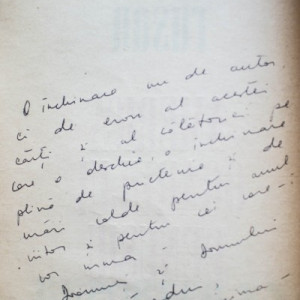 O închinare nu de autor,
ci de erou al acestei
cărți și al călătoriei pe
care o deschide, o închinare
plină de prietenie și de
urări calde pentru anul
viitor și pentru cei care-i
vor urma -
Ioanei și Domnului